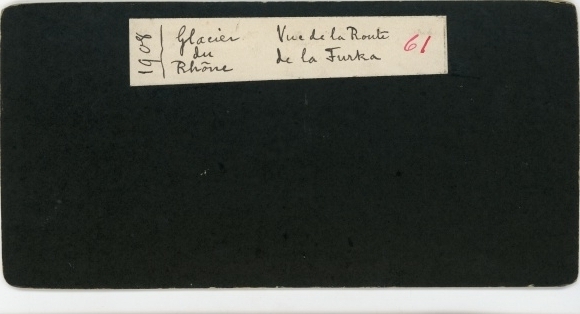 1908
Glacier
du
Rhône
Vue de la Route
de la Furka
61